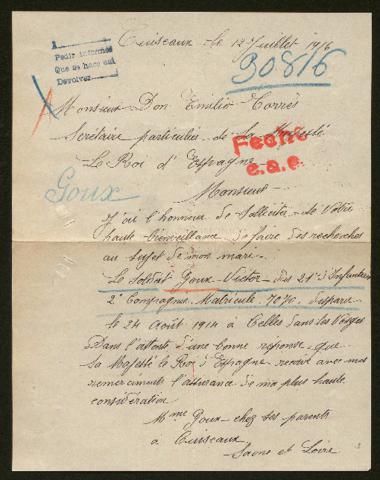 Cuiseaux le 12 Juillet 1916
A
Pedir informes
Que se hace así
Devolver
30816
Monsieur Don Emilio Torrès
Secrétaire particulier de Sa Majesté
Le Roi d'Espagne
Feché
e.a.e.
Goux
Monsieur
J'ai l'honneur de solliciter de Votre
haute bienveillance de faire des recherches
au sujet de mon mari
Le Soldat Goux Victor du 21e d'Infanterie
2e Compagnie Matricule 7070 disparu
le 24 Août 1914 à Celles dans les Vosges
Dans l'attente d'une bonne réponse que
Sa Majesté le Roi d'Espagne reçoive avec mes
remerciments l'assurance de ma plus haute
considération
Mme Goux chez ses parents
à Cuiseaux
Saone et Loire